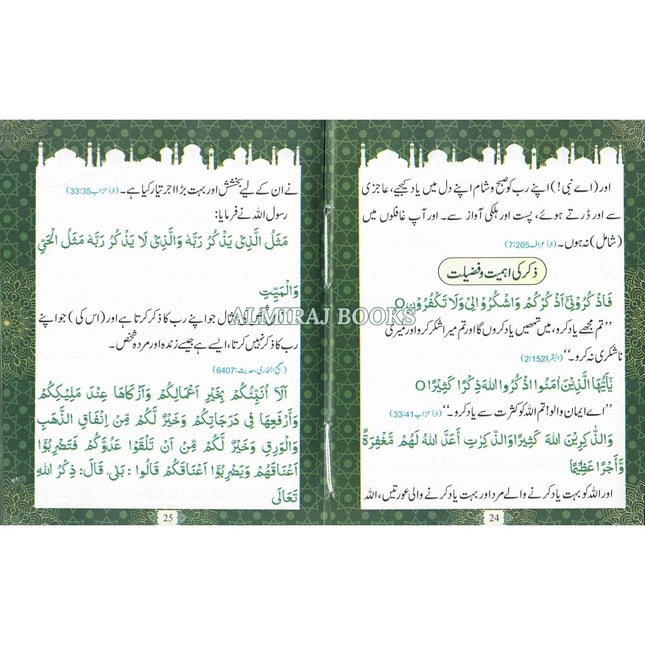 اور (اے نبی!) اپنے رب کو صبح و شام اپنے دل میں یاد کیجیے، عاجزی
سے اور ڈرتے ہوئے، پست اور ہلکی آواز سے۔ اور آپ غافلوں میں
(شامل) نہ ہوں۔ (الاعراف 7:205)
ذکر کی اہمیت و فضیلت
فَاذْكُرُوْنِیْٓ اَذْكُرْكُمْ وَاشْكُرُوْا لِیْ وَلَا تَكْفُرُوْنِ O
”تم مجھے یاد کرو، میں تمھیں یاد کروں گا اور تم میرا شکر کرو اور میری
ناشکری نہ کرو۔“ (البقرۃ 2:152)
یٰٓاَیُّهَا الَّذِیْنَ اٰمَنُوا اذْكُرُوا اللّٰهَ ذِكْرًا كَثِیْرًا O
”اے ایمان والو! تم اللہ کو کثرت سے یاد کرو۔“ (الاحزاب 33:41)
وَالذّٰكِرِیْنَ اللّٰهَ كَثِیْرًا وَّالذّٰكِرٰتِ اَعَدَّ اللّٰهُ لَهُمْ مَّغْفِرَةً
وَّاَجْرًا عَظِیْمًا
اور اللہ کو بہت یاد کرنے والے مرد اور بہت یاد کرنے والی عورتیں، اللہ
24
نے ان کے لیے بخشش اور بہت بڑا اجر تیار کیا ہے۔ (الاحزاب 33:35)
رسول اللہ نے فرمایا:
مَثَلُ الَّذِیْ یَذْكُرُ رَبَّهٗ وَالَّذِیْ لَا یَذْكُرُ رَبَّهٗ مَثَلُ الْحَیِّ
وَالْمَیِّتِ
مثال جو اپنے رب کا ذکر کرتا ہے اور (اس کی) جو اپنے
رب کا ذکر نہیں کرتا، ایسے ہے جیسے زندہ اور مردہ شخص۔
(صحیح البخاری، حدیث: 6407)
اَلَا اُنَبِّئُكُمْ بِخَیْرِ اَعْمَالِكُمْ وَاَزْكَاهَا عِنْدَ مَلِیْكِكُمْ
وَاَرْفَعِهَا فِیْ دَرَجَاتِكُمْ وَخَیْرٌ لَّكُمْ مِّنْ اِنْفَاقِ الذَّهَبِ
وَالْوَرِقِ وَخَیْرٌ لَّكُمْ مِّنْ اَنْ تَلْقَوْا عَدُوَّكُمْ فَتَضْرِبُوْا
اَعْنَاقَهُمْ وَیَضْرِبُوْا اَعْنَاقَكُمْ قَالُوْا: بَلٰی، قَالَ: ذِكْرُ اللّٰهِ
تَعَالٰی
25
ALMIRAJ BOOKS